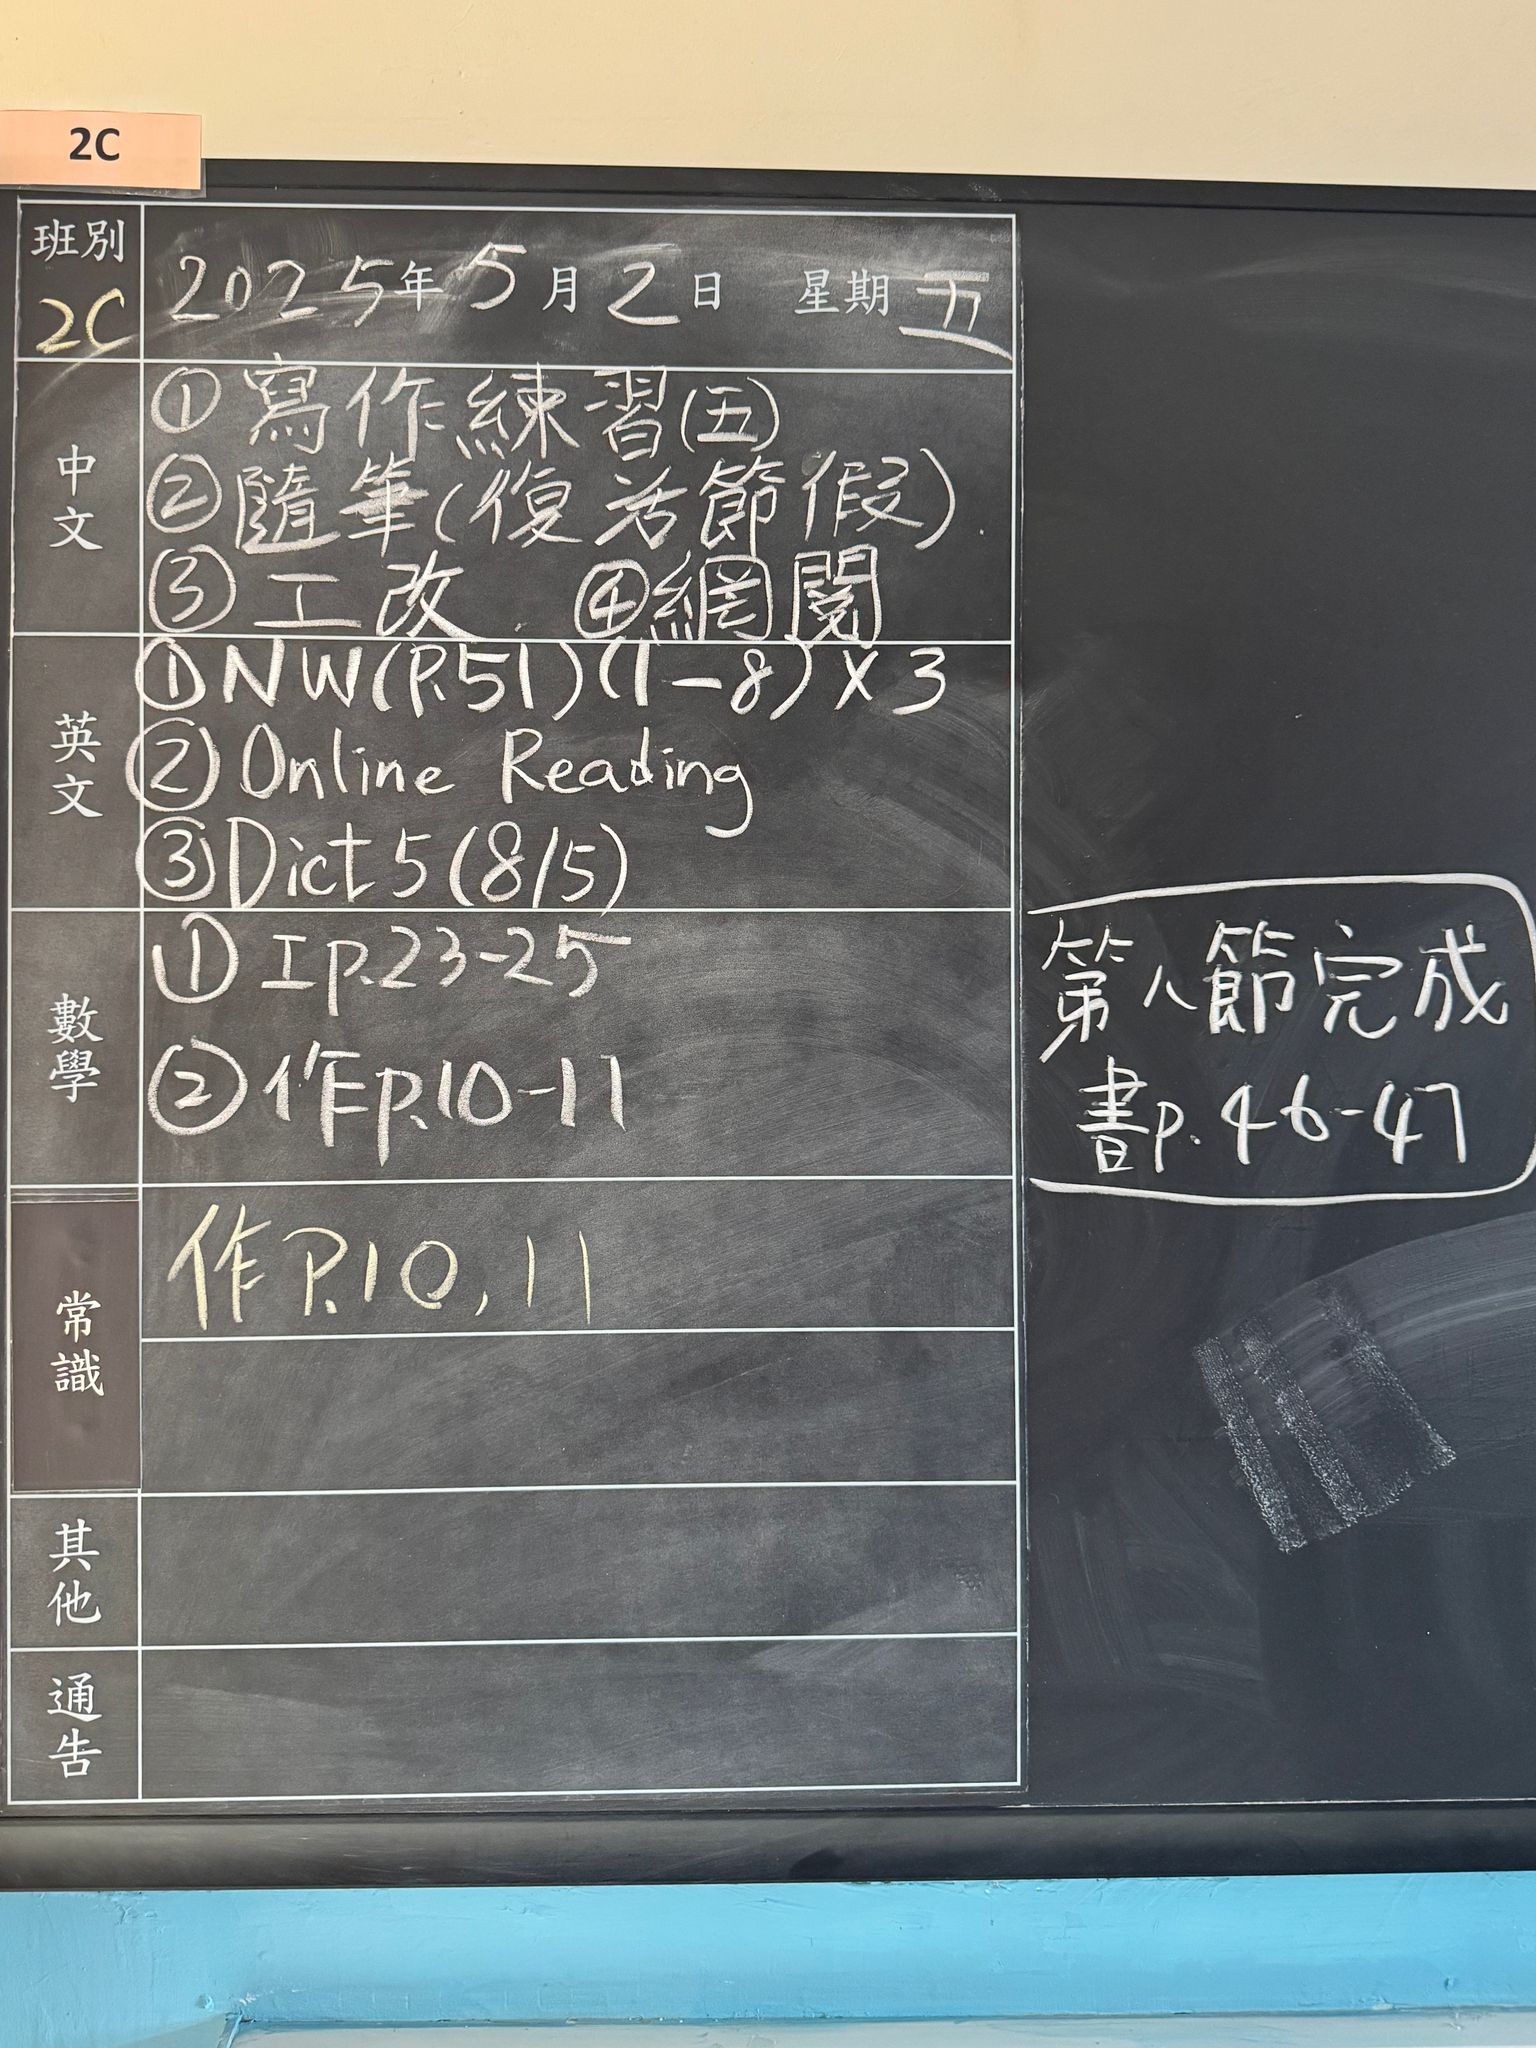 2C
班別
2C
2025年5月2日 星期五
中文
①寫作練習(五)
②隨筆(復活節假)
③工改 ④網閱
英文
①NW(P.51)(1-8)×3
②Online Reading
③Dict 5(8/5)
數學
①Ip.23-25
②作p.10-11
第八節完成
書p.46-47
常識
作P.10,11
其他
通告